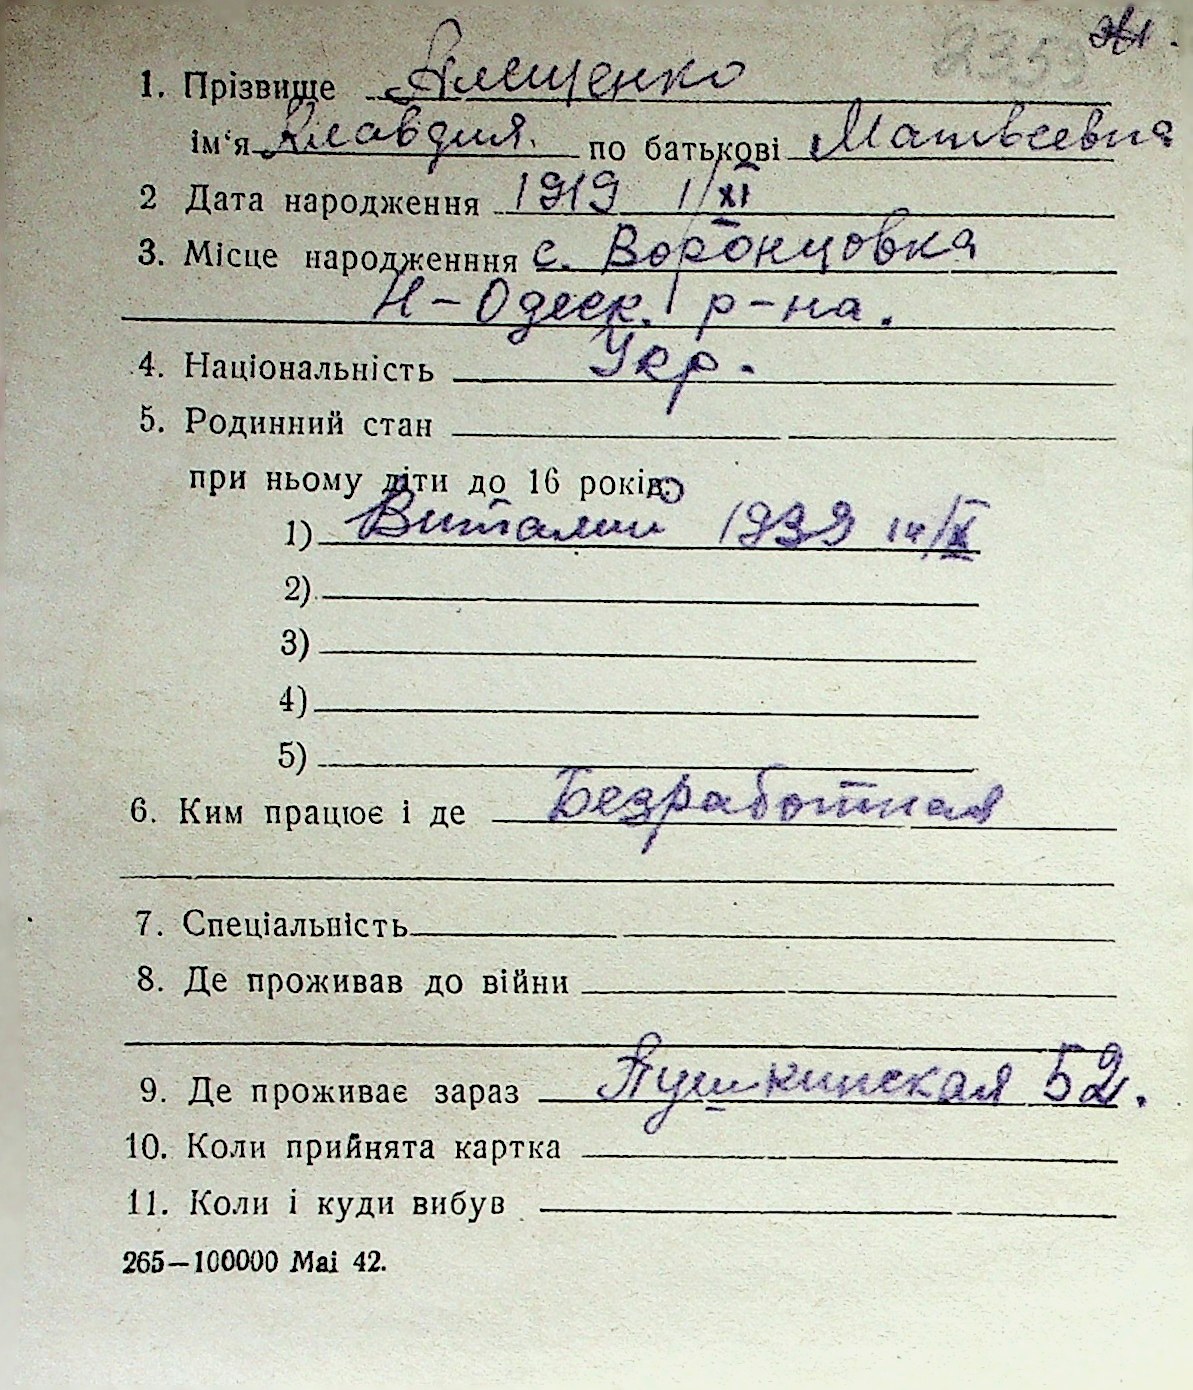 2359
1. Прізвище Алещенко
ім'я Клавдия. по батькові Матвеевна
2 Дата народження 1919 1/XI
3. Місце народженння с. Воронцовка
Н-Одеск. р-на.
4. Національність Укр.
5. Родинний стан
при ньому діти до 16 років:
1) Виталий 1939 14/X
2)
3)
4)
5)
6. Ким працює і де Безработная
7. Спеціальність
8. Де проживав до війни
9. Де проживає зараз Пушкинская 52.
10. Коли прийнята картка
11. Коли і куди вибув
265—100000 Маі 42.